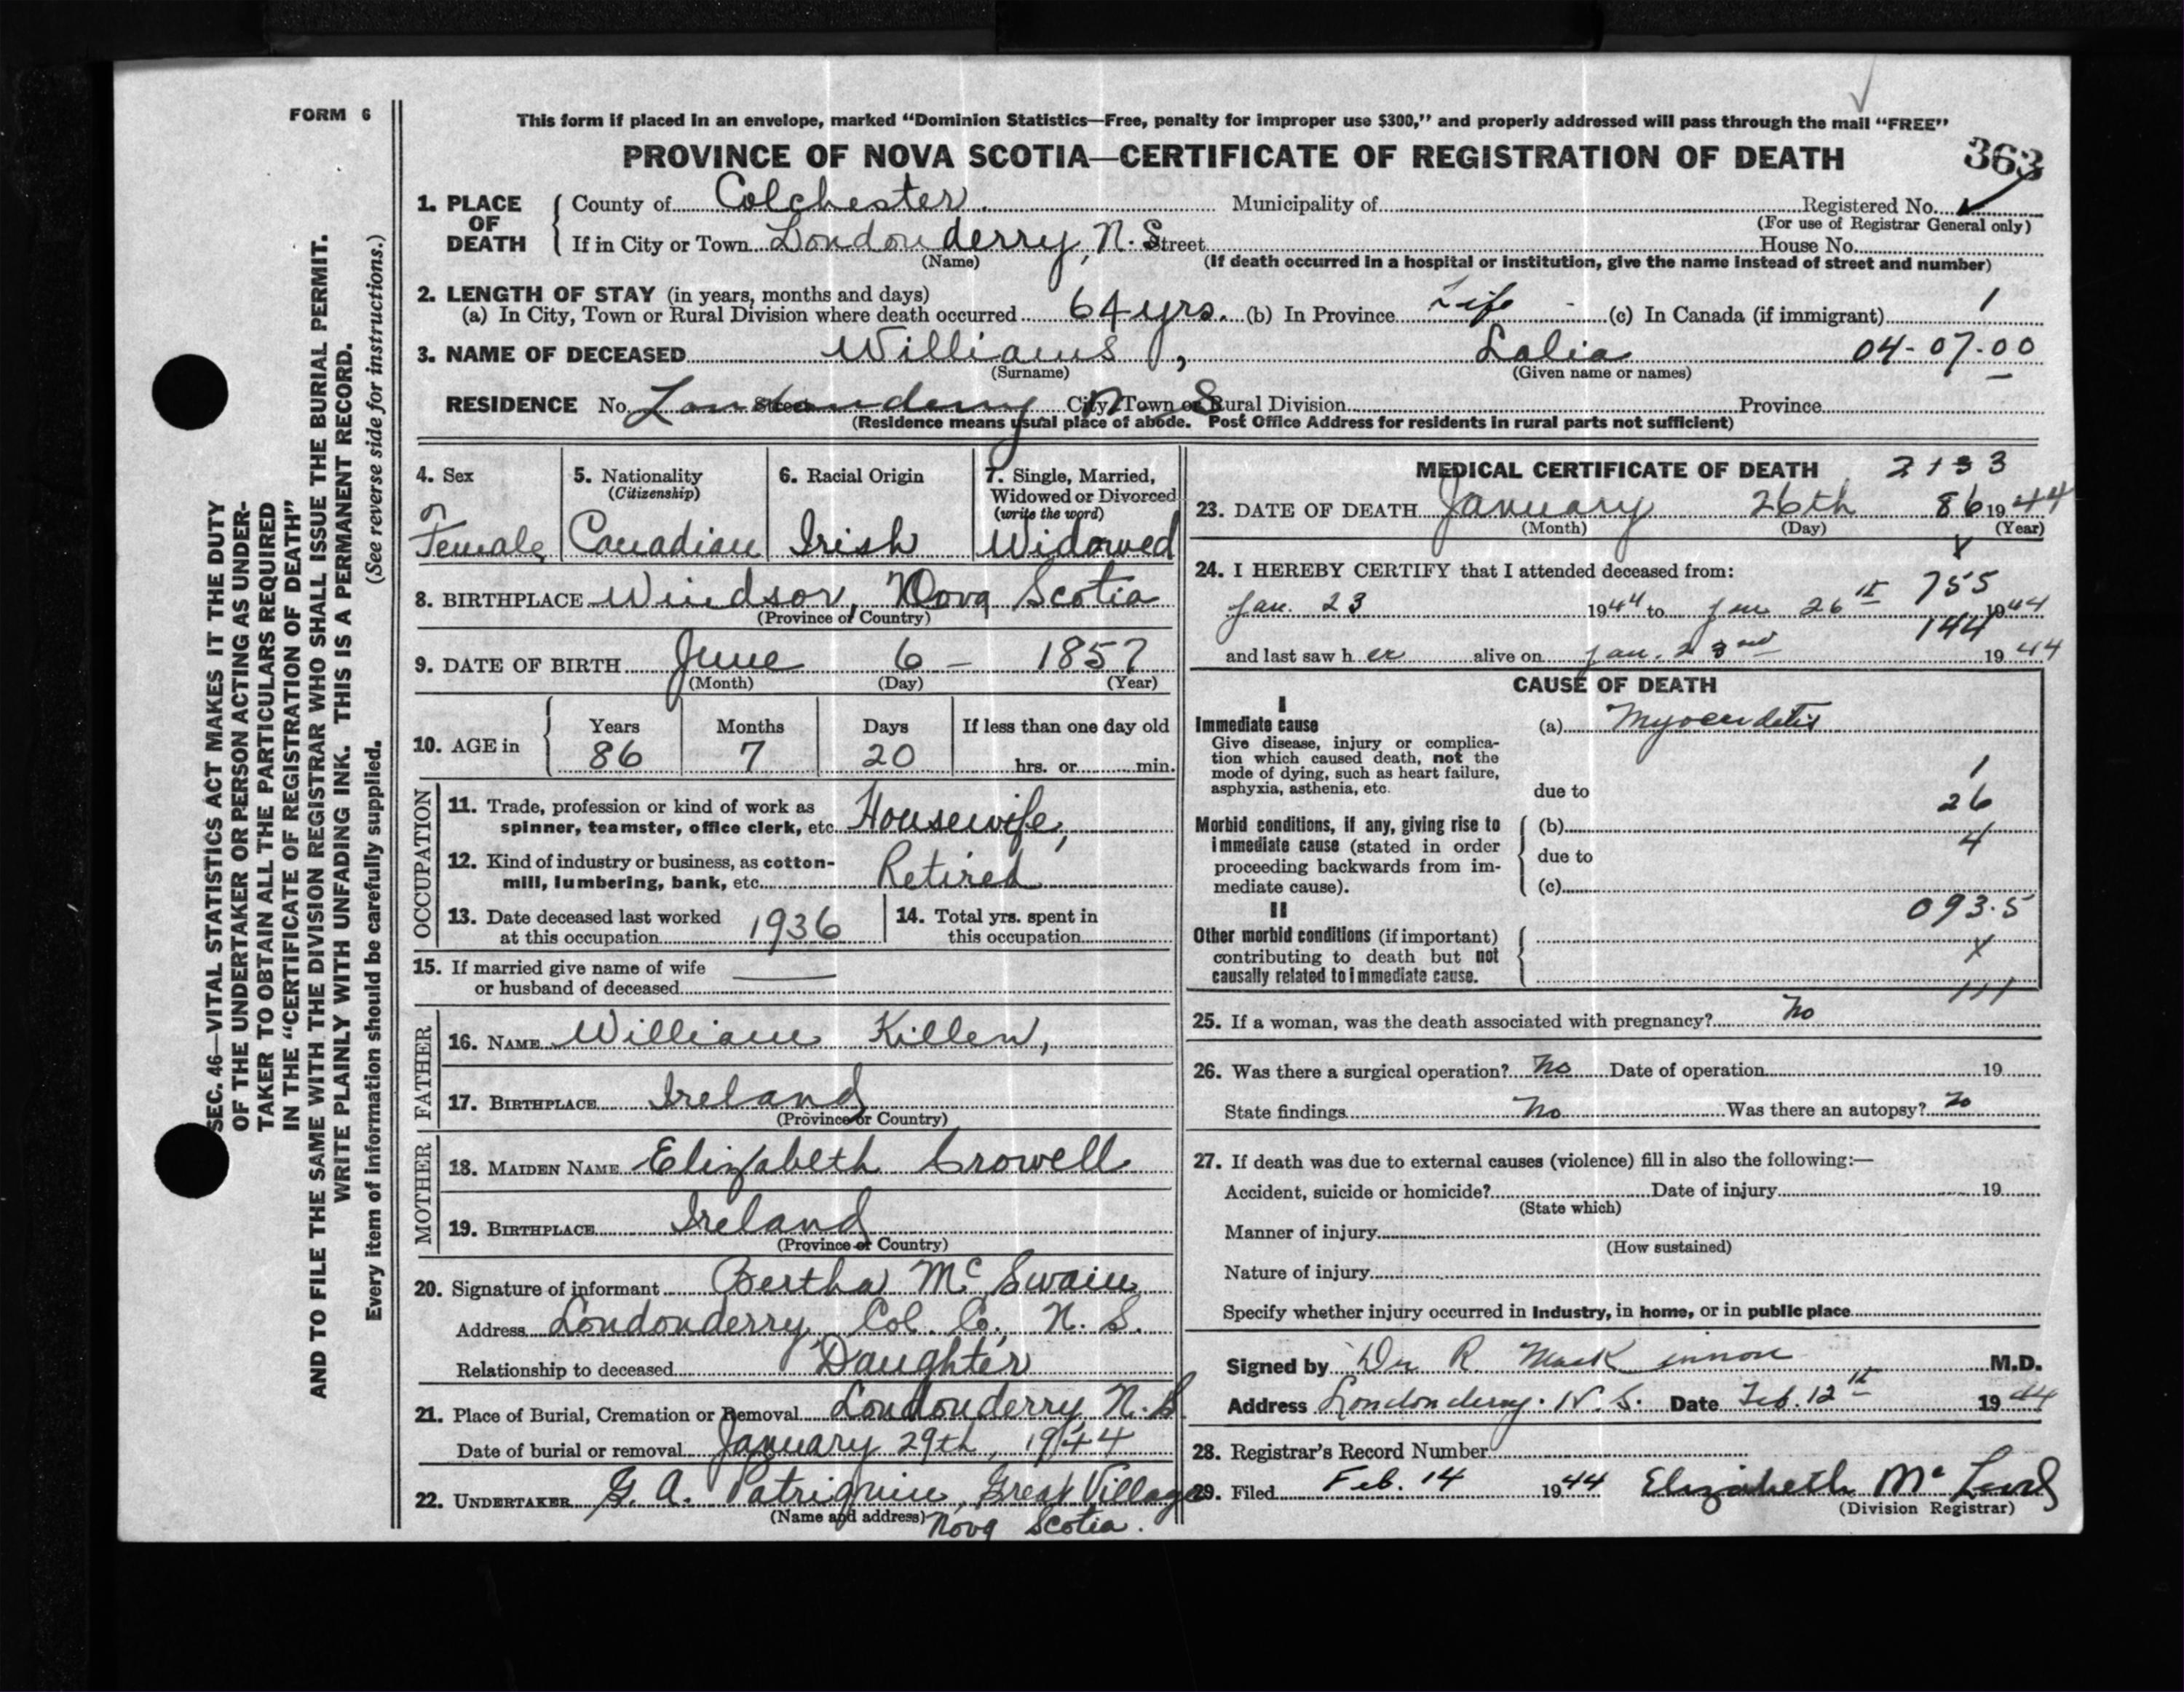 FORM 6
This form if placed in an envelope, marked “Dominion Statistics—Free, penalty for improper use $300,” and properly addressed will pass through the mail “FREE”
PROVINCE OF NOVA SCOTIA—CERTIFICATE OF REGISTRATION OF DEATH 363
1. PLACE OF DEATH County of Colchester. Municipality of Registered No.
(For use of Registrar General only)
If in City or Town Londonderry, N. S Street House No.
(Name) (If death occurred in a hospital or institution, give the name instead of street and number)
2. LENGTH OF STAY (in years, months and days)
(a) In City, Town or Rural Division where death occurred 64 yrs. (b) In Province Life - (c) In Canada (if immigrant) 1
3. NAME OF DECEASED Williams, Lalia 04-07-00
(Surname) (Given name or names)
RESIDENCE No. Londonderry Street N S City, Town or Rural Division Province
(Residence means usual place of abode. Post Office Address for residents in rural parts not sufficient)
4. Sex Female
5. Nationality (Citizenship) Canadian
6. Racial Origin Irish
7. Single, Married, Widowed or Divorced (write the word) Widowed
8. BIRTHPLACE Windsor, Nova Scotia
(Province or Country)
9. DATE OF BIRTH June 6 - 1857
(Month) (Day) (Year)
10. AGE in Years Months Days If less than one day old
86 7 20 hrs. or min.
OCCUPATION
11. Trade, profession or kind of work as
spinner, teamster, office clerk, etc. Housewife,
12. Kind of industry or business, as cotton-
mill, lumbering, bank, etc. Retired
13. Date deceased last worked
at this occupation 1936
14. Total yrs. spent in
this occupation
15. If married give name of wife
or husband of deceased
FATHER
16. NAME William Killen,
17. BIRTHPLACE Ireland
(Province or Country)
MOTHER
18. MAIDEN NAME Elizabeth Crowell
19. BIRTHPLACE Ireland
(Province or Country)
20. Signature of informant Bertha Mc Swain
Address Londonderry, Col. Co, N. S.
Relationship to deceased Daughter
21. Place of Burial, Cremation or Removal Londonderry, N. S.
Date of burial or removal January 29th, 1944
22. UNDERTAKER G. A. Patriquin, Great Village
(Name and address) Nova Scotia.
MEDICAL CERTIFICATE OF DEATH 2133
23. DATE OF DEATH January 26th 86 1944
(Month) (Day) (Year)
24. I HEREBY CERTIFY that I attended deceased from:
755
Jan. 23 1944 to Jan 26 1944
144
and last saw her alive on Jan. 23rd 1944
CAUSE OF DEATH
I
Immediate cause (a) Myocarditis
Give disease, injury or complica-
tion which caused death, not the
mode of dying, such as heart failure,
asphyxia, asthenia, etc. due to
1
26
Morbid conditions, if any, giving rise to (b)
immediate cause (stated in order 4
proceeding backwards from im- due to
mediate cause). (c)
II 093.5
Other morbid conditions (if important)
contributing to death but not X
causally related to immediate cause.
111
25. If a woman, was the death associated with pregnancy? No
26. Was there a surgical operation? No Date of operation 19
State findings No Was there an autopsy? No
27. If death was due to external causes (violence) fill in also the following:—
Accident, suicide or homicide? Date of injury 19
(State which)
Manner of injury
(How sustained)
Nature of injury
Specify whether injury occurred in industry, in home, or in public place
Signed by Dr R. MacKinnon M.D.
Address Londonderry. N. S. Date Feb. 12 1944
28. Registrar's Record Number
29. Filed Feb. 14 1944 Elizabeth Mc
(Division Registrar)
SEC. 46—VITAL STATISTICS ACT MAKES IT THE DUTY
OF THE UNDERTAKER OR PERSON ACTING AS UNDER-
TAKER TO OBTAIN ALL THE PARTICULARS REQUIRED
IN THE “CERTIFICATE OF REGISTRATION OF DEATH”
AND TO FILE THE SAME WITH THE DIVISION REGISTRAR WHO SHALL ISSUE THE BURIAL PERMIT.
WRITE PLAINLY WITH UNFADING INK. THIS IS A PERMANENT RECORD.
Every item of information should be carefully supplied. (See reverse side for instructions.)